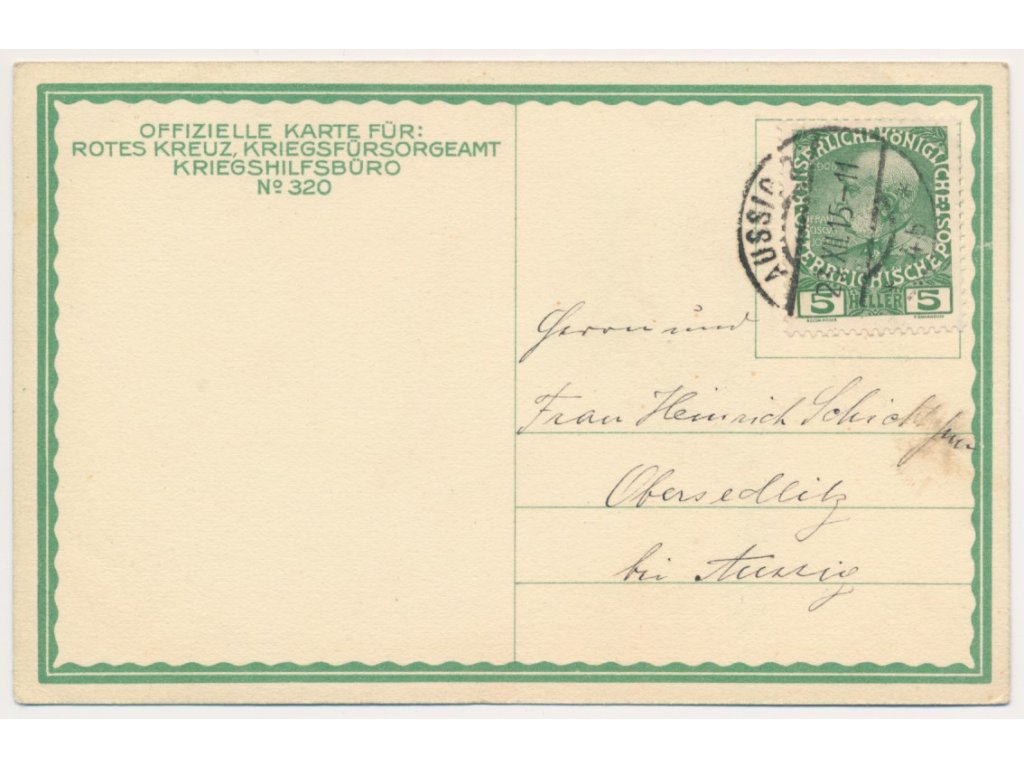 OFFIZIELLE KARTE FÜR:
ROTES KREUZ, KRIEGSFÜRSORGEAMT
KRIEGSHILFSBÜRO
Nº 320
KAISERLICHE KÖNIGLICHE
ÖSTERREICHISCHE POST
5 HELLER 5
AUSSIG
XII.15-11
Herrn und
Frau Heinrich Schicht jun
Obersedlitz
bei Aussig